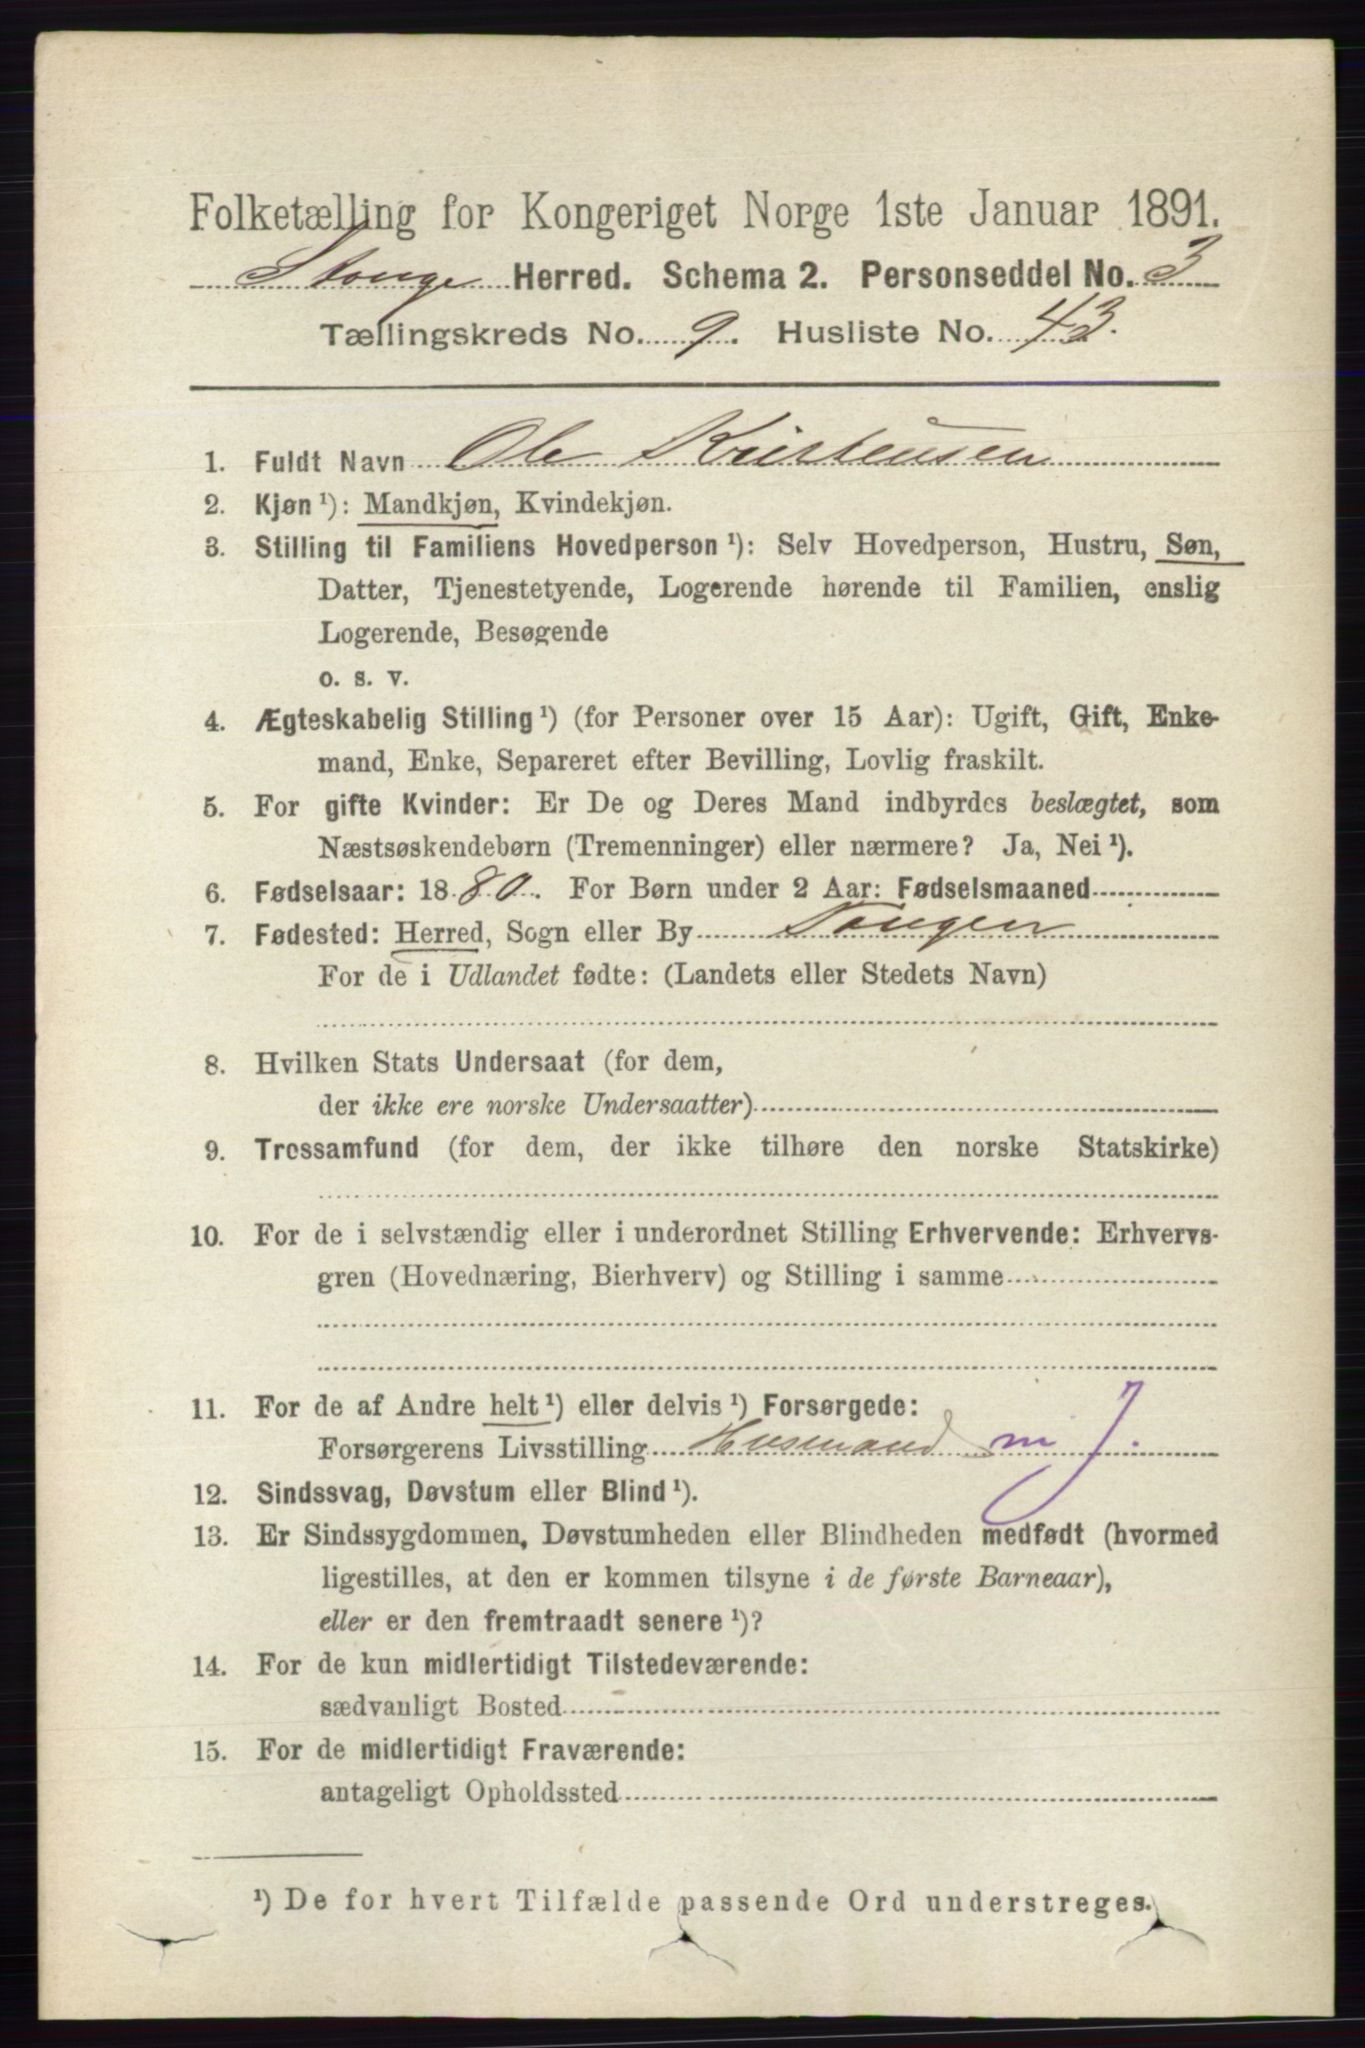 Folketælling for Kongeriget Norge 1ste Januar 1891.
Stange Herred. Schema 2. Personseddel No. 3
Tællingskreds No. 9. Husliste No. 43.
1. Fuldt Navn Ole Kristensen
2. Kjøn ¹): Mandkjøn, Kvindekjøn.
3. Stilling til Familiens Hovedperson ¹): Selv Hovedperson, Hustru, Søn,
Datter, Tjenestetyende, Logerende hørende til Familien, enslig
Logerende, Besøgende
o. s. v.
4. Ægteskabelig Stilling ¹) (for Personer over 15 Aar): Ugift, Gift, Enke-
mand, Enke, Separeret efter Bevilling, Lovlig fraskilt.
5. For gifte Kvinder: Er De og Deres Mand indbyrdes beslægtet, som
Næstsøskendebørn (Tremenninger) eller nærmere? Ja, Nei ¹).
6. Fødselsaar: 1880. For Børn under 2 Aar: Fødselsmaaned
7. Fødested: Herred, Sogn eller By Tangen
For de i Udlandet fødte: (Landets eller Stedets Navn)
8. Hvilken Stats Undersaat (for dem,
der ikke ere norske Undersaatter)
9. Trossamfund (for dem, der ikke tilhøre den norske Statskirke)
10. For de i selvstændig eller i underordnet Stilling Erhvervende: Erhvervs-
gren (Hovednæring, Bierhverv) og Stilling i samme
11. For de af Andre helt ¹) eller delvis ¹) Forsørgede:
Forsørgerens Livsstilling Husmand m J.
12. Sindssvag, Døvstum eller Blind ¹).
13. Er Sindssygdommen, Døvstumheden eller Blindheden medfødt (hvormed
ligestilles, at den er kommen tilsyne i de første Barneaar),
eller er den fremtraadt senere ¹)?
14. For de kun midlertidigt Tilstedeværende:
sædvanligt Bosted
15. For de midlertidigt Fraværende:
antageligt Opholdssted
¹) De for hvert Tilfælde passende Ord understreges.